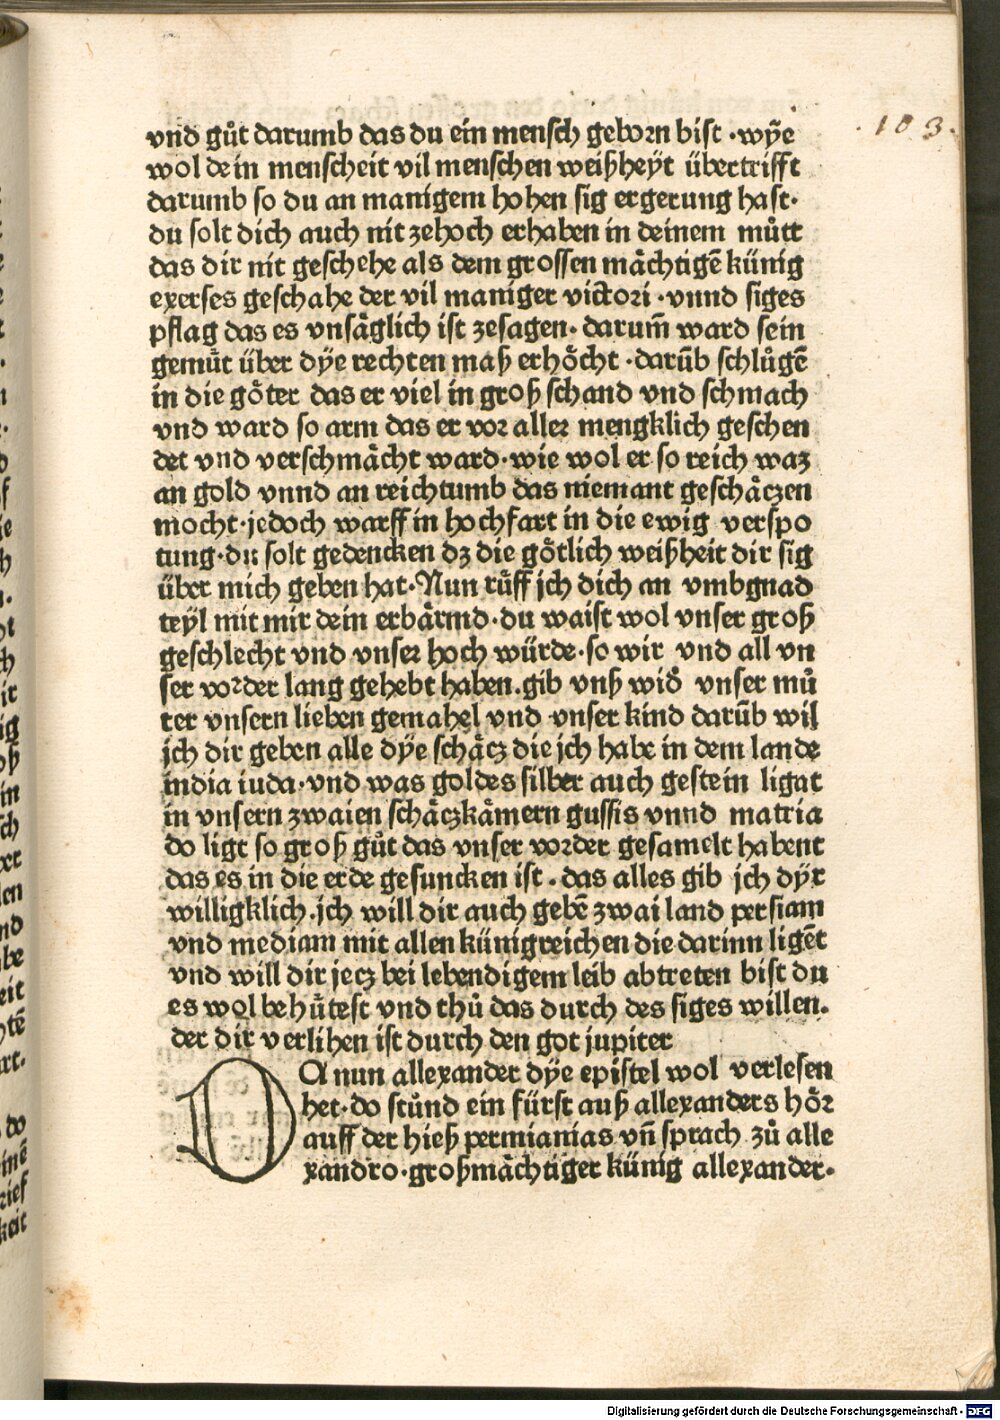 .103.
vnd gůt darumb das du ein mensch geborn bist ·wÿe
wol dein menscheit vil menschen weißheÿt übertrifft
darumb so du an manigem hohen sig ergerung hast·
du solt dich auch nit zehoch erhaben in deinem můtt
das dir nit geschehe als dem grossen mächtigē künig
exerses geschahe der vil maniger victori ·vnnd siges
pflag das es vnsäglich ist zesagen· darum̄ ward sein
gemüt über dÿe rechten maß erhöcht ·darūb schlůgē
in die göter das er viel in groß schand vnd schmach
vnd ward so arm das er vor aller mengklich geschen
det vnd verschmächt ward·wie wol er so reich waz
an gold vnnd an reichtumb das niemant geschäczen
mocht·jedoch warff in hochfart in die ewig verspo
tung·du solt gedencken dz die götlich weißheit dir sig
über mich geben hat·Nun rüff jch dich an vmbgnad
teÿl mit mir dein erbärmd·du waist wol vnser groß
geschlecht vnd vnser hoch würde·so wir vnd all vn
ser vorder lang gehebt haben.gib vnß wid̄ vnser mů
ter vnsern lieben gemahel vnd vnser kind darūb wil
jch dir geben alle dÿe schäcz die jch habe in dem lande
india iuda·vnd was goldes silber auch gestein ligat
in vnsern zwaien schäczkämern gussis vnnd matria
do ligt so groß gůt das vnser vorder gesamelt habent
das es in die erde gesuncken ist . das alles gib jch dÿr
willigklich.jch will dir auch gebē zwai land persiam
vnd mediam mit allen künigreichen die darinn ligēt
vnd will dir jecz bei lebendigem leib abtreten bist du
es wol behütest vnd thů das durch des siges willen.
der dir verlihen ist durch den got jupiter
DA nun allexander dÿe epistel wol verlesen
het·do stůnd ein fürst auß allexanders hör
auff der hieß permianias vn̄ sprach zů alle
xandro·großmächtiger künig allexander·
Digitalisierung gefördert durch die Deutsche Forschungsgemeinschaft - DFG